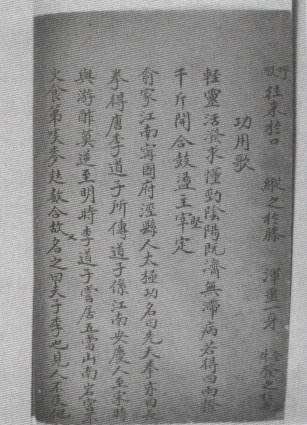 呼吸往來於口 縱之於膝 渾噩一身 全身發之於毛
功用歌
輕靈活潑求懂勁陰陽既濟無滯病若得四兩撥
千斤開合鼓盪主宰定
俞家江南寧國府涇縣人太極功名曰先天拳亦曰長
拳得唐李道子所傳道子係江南安慶人至宋時
與游酢莫逆至明時李道子嘗居五當山南岩宮不
火食第啖麥麩數合故又名之曰夫子李也見人不及他